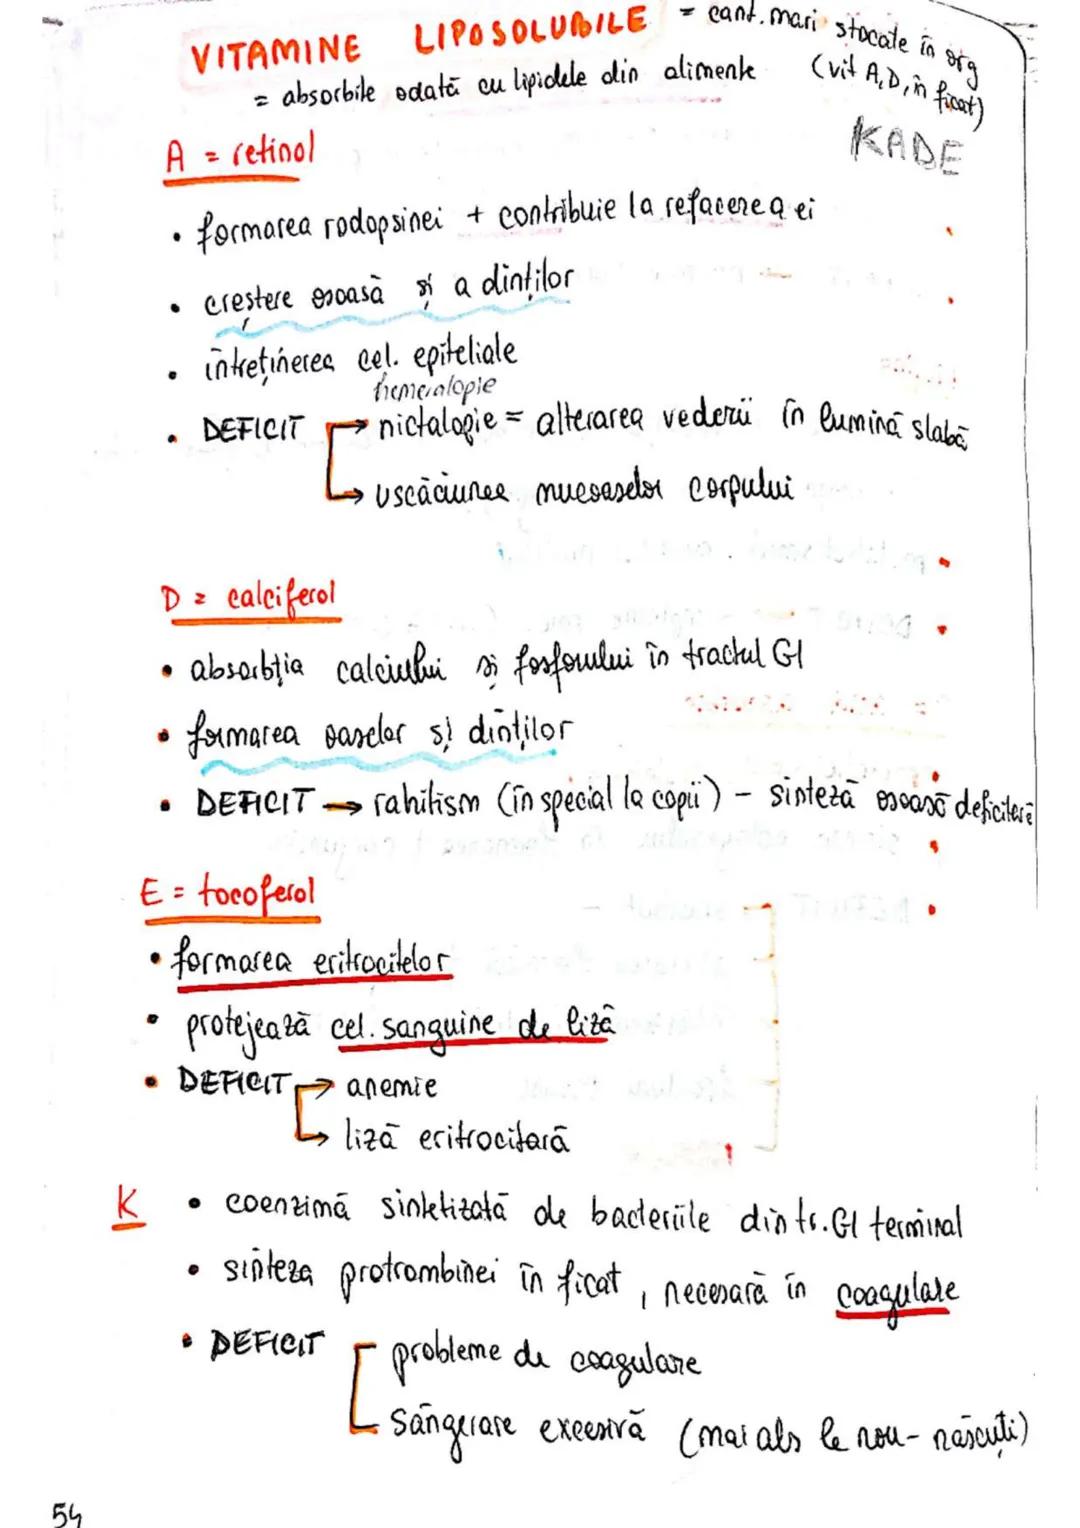 VITAMINE LIPOSOLUBILE = cant. mari stocate în org
= absorbile odată cu lipidele din alimente (vit A, D, în ficat)
KADE
A = retinol
• formarea rodopsinei + contribuie la refacerea ei
• creștere osoasă și a dinților
• întreținerea cel. epiteliale
hemeralopie
• DEFICIT → nictalopie = alterarea vederii în lumină slabă
→ uscăciunea mucoaselor corpului
D = calciferol
• absorbția calciului și fosforului în tractul GI
• formarea oaselor și dinților
• DEFICIT → rahitism (în special la copii) - sinteză osoasă deficitară
E = tocoferol
• formarea eritrocitelor
• protejează cel. sanguine de liză
• DEFICIT → anemie
→ liză eritrocitară
K • coenzimă sintetizată de bacteriile din tr. GI terminal
• sinteza protrombinei în ficat, necesară în coagulare
• DEFICIT probleme de coagulare
sângerare excesivă (mai als la nou-născuți)
54